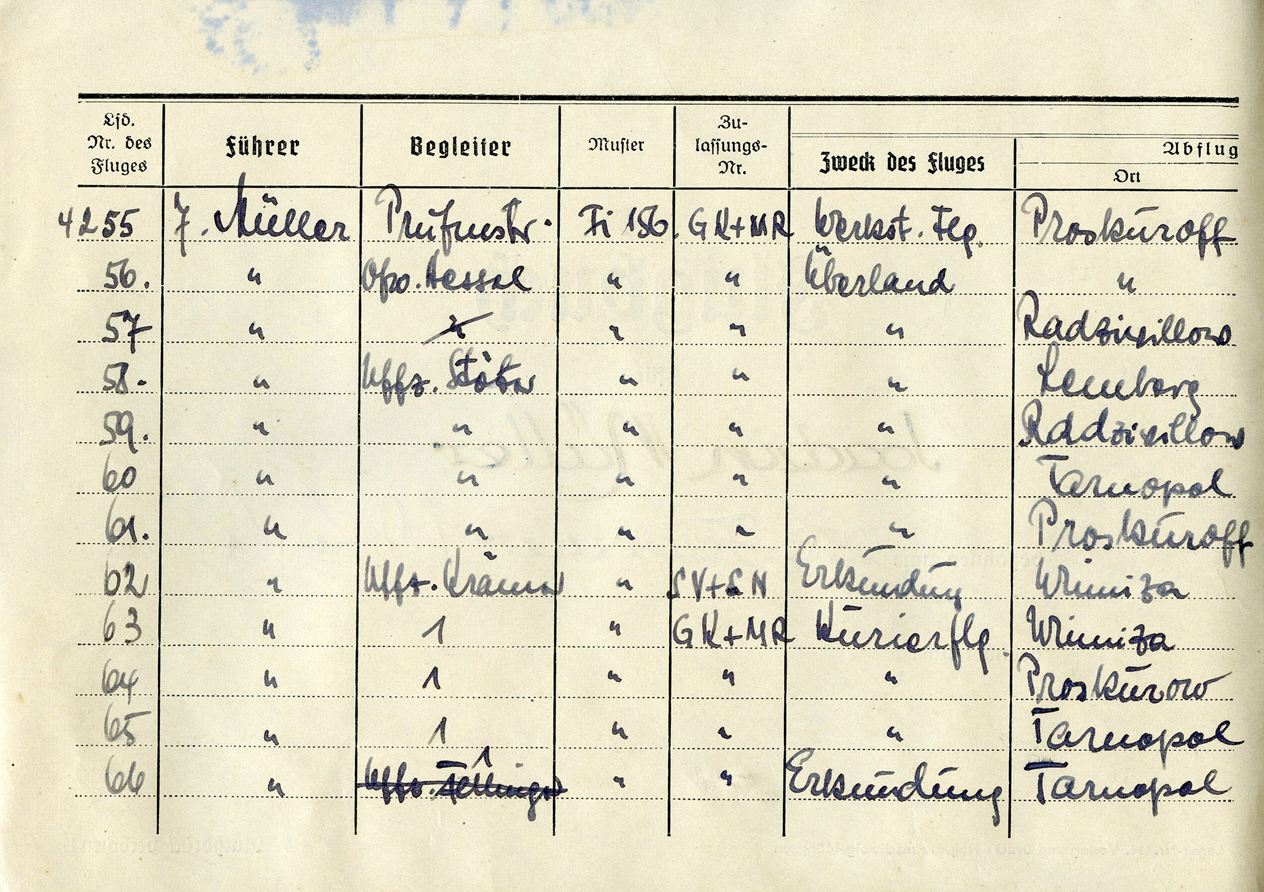 Lfd. Nr. des Fluges Führer Begleiter Muster Zulassungs-Nr. Zweck des Fluges Abflug Ort
4255 F. Müller Prüfmstr. Fi 156. GK+MR Werkst. Flg. Proskuroff
56. " Ofw. Hessel " " Überland "
57 " " " " " Radziwillow
58. " Uffz. Stöber " " " Lemberg
59. " " " " " Radziwillow
60 " " " " " Tarnopol
61. " " " " " Proskuroff
62 " Uffz. Krämer " SV+SN Erkundung Winniza
63 " 1 " GK+MR Kurierflg. Winniza
64 " 1 " " " Proskurow
65 " 1 " " " Tarnopol
66 " 1 " " Erkundung Tarnopol